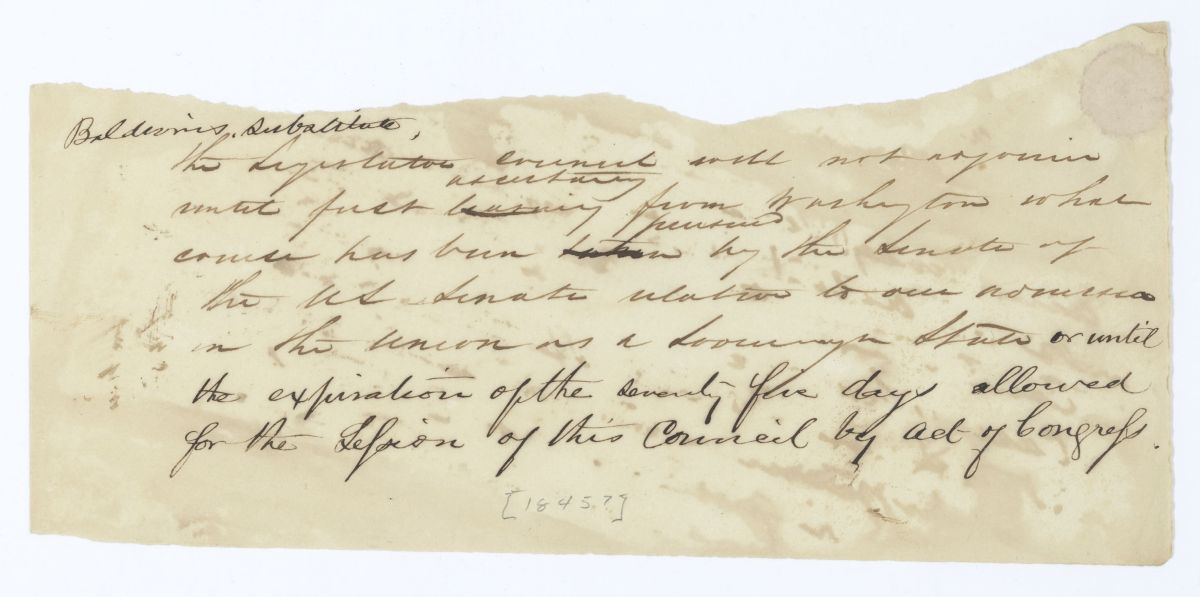 Baldwins substitute,
the Legislative council will not adjourn
ascertaining
until first learning from Washington what
pursued
course has been taken by the Senate of
the US Senate relative to our admission
in the Union as a Sovereign State or until
the expiration of the seventy five days allowed
for the Session of this Council by act of Congress.
[1845?]